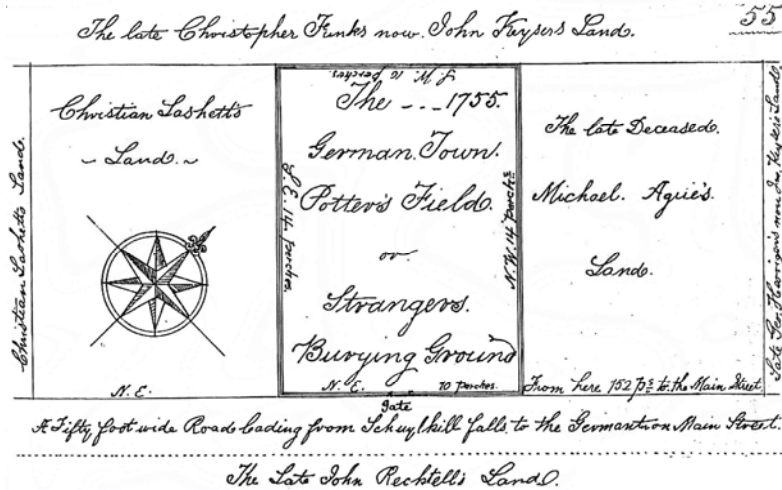 55
The late Christopher Funks now John Keysers Land.
Christian Lashetts Land.
Christian Lashetts
~ Land. ~
N. E.
S. W. 10 perches.
S. E. 14 perches.
The --- 1755.
German. Town.
Potter's Field.
or
Strangers.
Burying Ground
N. E. 10 perches.
N. W. 14 perchs
Gate
The late Deceased.
Michael. Agie's.
Land.
From here 152 ps to the Main Street
Late Geo. Keyser's Land.
A Fifty foot wide Road leading from Schuylkill falls to the Germantown Main Street.
The Late John Recktell's Land.